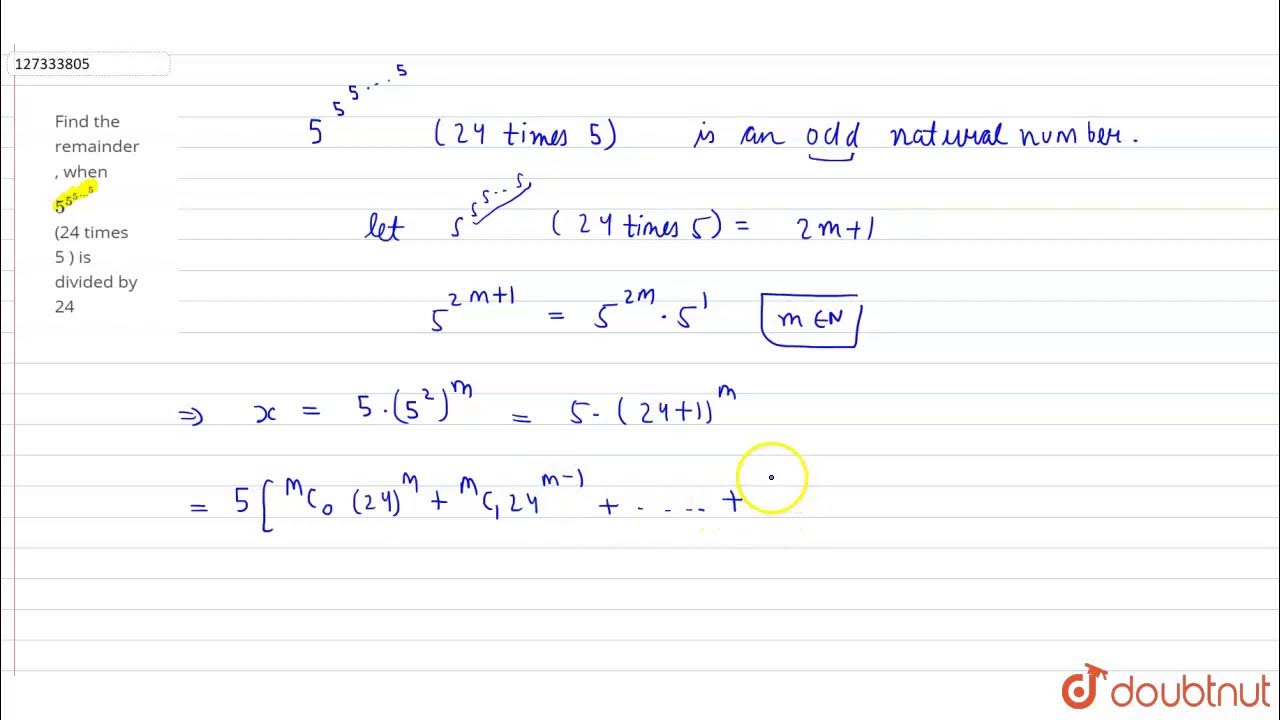 127333805
Find the
remainder
, when
5^5^5^...^5
(24 times
5 ) is
divided by
24
5^5^5^...^5 (24 times 5) is an odd natural number.
let 5^5^5^...^5 (24 times 5) = 2m+1
5^(2m+1) = 5^(2m) · 5^1 m ∈ N
⇒ x = 5·(5^2)^m = 5·(24+1)^m
= 5[ ^mC_0 (24)^m + ^mC_1 24^(m-1) + ..... +
doubtnut